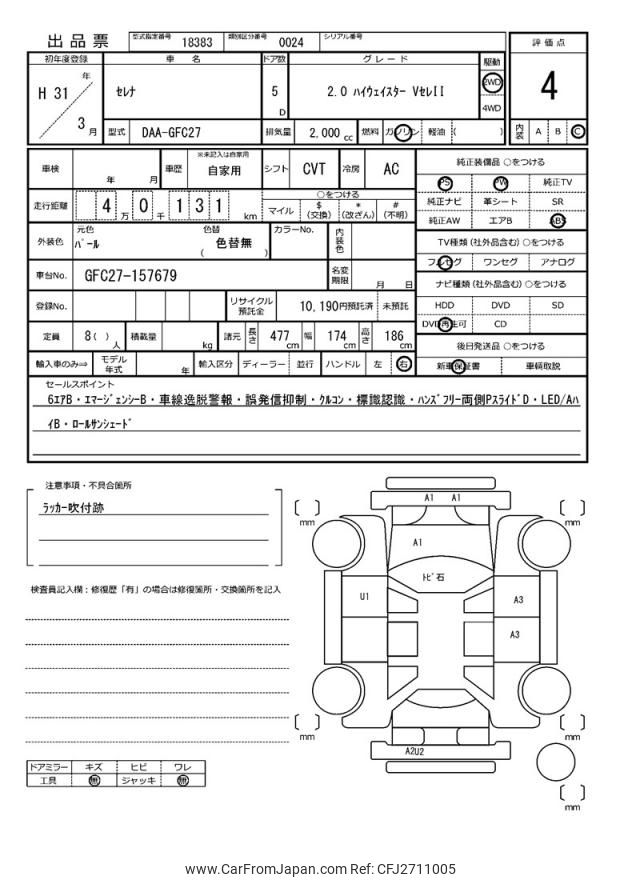 出品票 型式指定番号 18383 類別区分番号 0024 シリアル番号
評価点
初年度登録 車名 ドア数 グレード 駆動
H 31 年 3 月 セレナ 5 D 2.0 ハイウェイスター VセレII 2WD 4WD
4
型式 DAA-GFC27 排気量 2,000 cc 燃料 ガソリン 軽油 ( )
内装 A B C
車検 年 月 車歴 ※未記入は自家用 自家用 シフト CVT 冷房 AC
走行距離 4 万 0 千 1 3 1 km
○をつける
マイル $ (交換) * (改ざん) # (不明)
外装色 元色 パール 色替 色替無 ( ) カラーNo. 内装色
車台No. GFC27-157679 名変期限 月 日
登録No. リサイクル預託金 10,190円預託済 未預託
定員 8 ( ) 人 積載量 kg 諸元 長さ 477 cm 幅 174 cm 高さ 186 cm
輸入車のみ⇨ モデル年式 年 輸入区分 ディーラー 並行 ハンドル 左 右
純正装備品 ○をつける
PS PW 純正TV
純正ナビ 革シート SR
純正AW エアB ABS
TV種類 (社外品含む) ○をつける
フルセグ ワンセグ アナログ
ナビ種類 (社外品含む) ○をつける
HDD DVD SD
DVD再生可 CD
後日発送品 ○をつける
新車保証書 車輌取説
セールスポイント
6エアB・エマージェンシーB・車線逸脱警報・誤発信抑制・クルコン・標識認識・ハンズフリー両側PスライドD・LED/Aハ
イB・ロールサンシェード
注意事項・不具合箇所
ラッカー吹付跡
検査員記入欄：修復歴「有」の場合は修復箇所・交換箇所を記入
ドアミラー キズ ヒビ ワレ
工具 無 ジャッキ 無
A1 A1
mm mm
A1
トビ石
U1 A3
A3
mm mm
A2U2
mm
www.CarFromJapan.com Ref: CFJ2711005